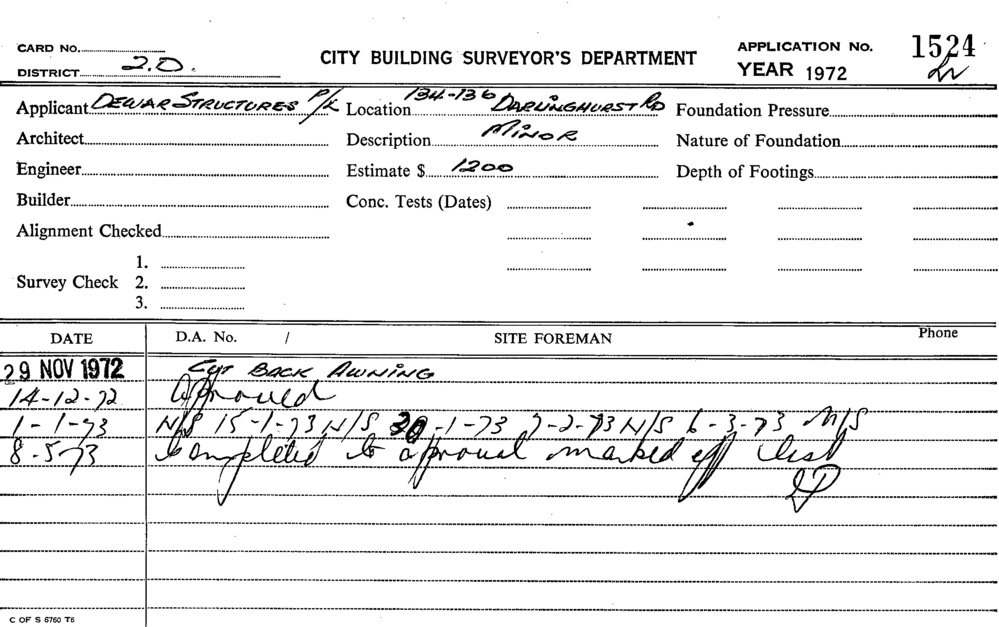 CARD No.
CITY BUILDING SURVEYOR'S DEPARTMENT
APPLICATION No. 1524
DISTRICT 2.D.
YEAR 1972
Applicant DEWAR STRUCTURES P/L Location 134-136 DARLINGHURST RD Foundation Pressure
Architect Description MINOR Nature of Foundation
Engineer Estimate $ 1200 Depth of Footings
Builder Conc. Tests (Dates)
Alignment Checked
1.
Survey Check 2.
3.
DATE D.A. No. / SITE FOREMAN Phone
29 NOV 1972 CUT BACK AWNING
14-12-72 Approved
1-1-73 N/S 15-1-73 N/S 30-1-73 7-2-73 N/S 6-3-73 N/S
8-5-73 Completed to approval marked off list
C OF S 6760 T6